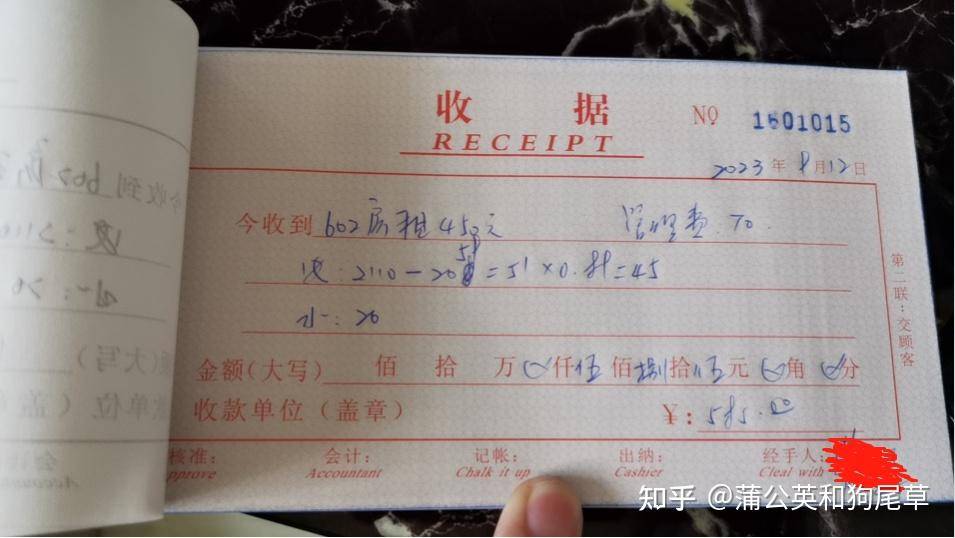 收据
RECEIPT
NO 1601015
2023年8月12日
今收到 602房租450元 管理费:70.
2110-20 =51×0. =45
水:20
金额(大写) 佰 拾 万 0仟伍佰捌拾伍元 0角 0分
收款单位(盖章) ¥:585.00
第二联:交顾客
核准: 会计: 记帐: 出纳: 经手人:
pprove Accountant Chalk it up Cashier Cleal with
知乎 @蒲公英和狗尾草